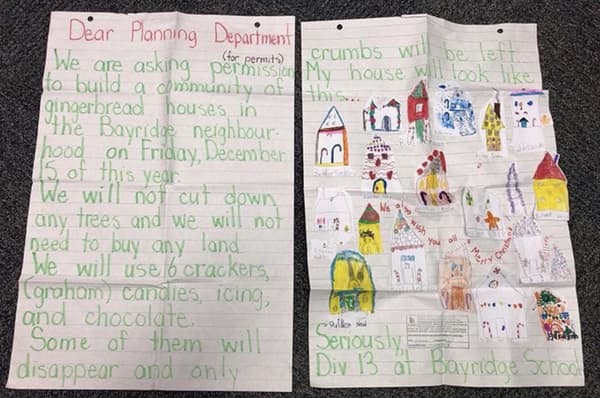 Dear Planning Department
(for permits)
We are asking permission
to build a community of
gingerbread houses in
the Bayridge neighbour-
hood on Friday, December
15 of this year.
We will not cut down
any trees and we will not
need to buy any land.
We will use 6 crackers,
(graham) candies, icing,
and chocolate.
Some of them will
disappear and only
crumbs will be left.
My house will look like
this...
We also wish
you all
a
Merry Christmas
Seriously,
Div 13 at Bayridge School